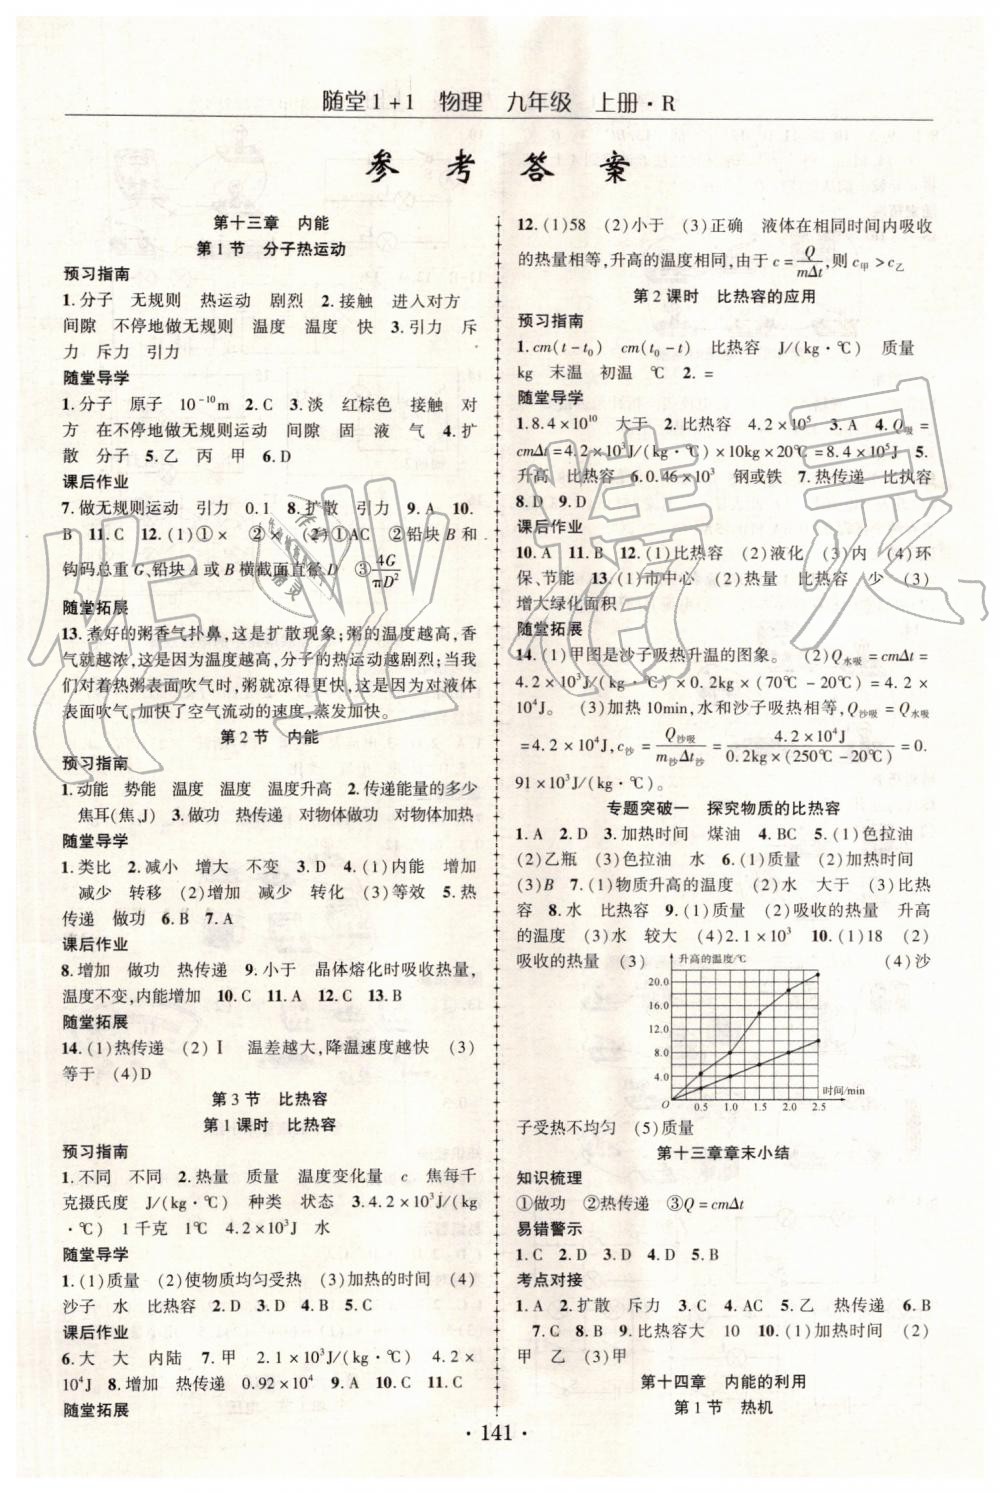 随堂1+1 物理 九年级 上册·R
参考答案
第十三章 内能
第1节 分子热运动
预习指南
1.分子 无规则 热运动 剧烈 2.接触 进入对方
间隙 不停地做无规则 温度 温度 快 3.引力 斥
力 斥力 引力
随堂导学
1.分子 原子 10⁻¹⁰m 2.C 3.淡 红棕色 接触 对
方 在不停地做无规则运动 间隙 固 液 气 4.扩
散 分子 5.乙 丙 甲 6.D
课后作业
7.做无规则运动 引力 0.1 8.扩散 引力 9.A 10.
B 11.C 12.(1)①× ②× (2)①AC ②铅块B和
钩码总重G、铅块A或B横截面直径D ③4G/πD²
随堂拓展
13.煮好的粥香气扑鼻,这是扩散现象;粥的温度越高,香
气就越浓,这是因为温度越高,分子的热运动越剧烈;当我
们对着热粥表面吹气时,粥就凉得更快,这是因为对液体
表面吹气,加快了空气流动的速度,蒸发加快。
第2节 内能
预习指南
1.动能 势能 温度 温度 温度升高 2.传递能量的多少
焦耳(焦、J) 3.做功 热传递 对物体做功 对物体加热
随堂导学
1.类比 2.减小 增大 不变 3.D 4.(1)内能 增加
减少 转移 (2)增加 减少 转化 (3)等效 5.热
传递 做功 6.B 7.A
课后作业
8.增加 做功 热传递 9.小于 晶体熔化时吸收热量,
温度不变,内能增加 10.C 11.A 12.C 13.B
随堂拓展
14.(1)热传递 (2)Ⅰ 温差越大,降温速度越快 (3)
等于 (4)D
第3节 比热容
第1课时 比热容
预习指南
1.不同 不同 2.热量 质量 温度变化量 c 焦每千
克摄氏度 J/(kg·℃) 种类 状态 3.4.2×10³J/(kg
·℃) 1千克 1℃ 4.2×10³J 水
随堂导学
1.(1)质量 (2)使物质均匀受热 (3)加热的时间 (4)
沙子 水 比热容 2.D 3.D 4.B 5.C
课后作业
6.大 大 内陆 7.甲 2.1×10³J/(kg·℃) 4.2×
10⁴J 8.增加 热传递 0.92×10⁴ 9.A 10.C 11.C
随堂拓展
12.(1)58 (2)小于 (3)正确 液体在相同时间内吸收
的热量相等,升高的温度相同,由于c=Q/mΔt,则c甲>c乙
第2课时 比热容的应用
预习指南
1.cm(t-t₀) cm(t₀-t) 比热容 J/(kg·℃) 质量
kg 末温 初温 ℃ 2.=
随堂导学
1.8.4×10¹⁰ 大于 2.比热容 4.2×10⁵ 3.A 4.Q吸=
cmΔt=4.2×10³J/(kg·℃)×10kg×20℃=8.4×10⁵J 5.
升高 比热容 6.0.46×10³ 钢或铁 7.热传递 比执容
8.D 9.D
课后作业
10.A 11.B 12.(1)比热容 (2)液化 (3)内 (4)环
保、节能 13.(1)市中心 (2)热量 比热容 少 (3)
增大绿化面积
随堂拓展
14.(1)甲图是沙子吸热升温的图象。 (2)Q水吸=cmΔt=
4.2×10³J/(kg·℃)×0.2kg×(70℃-20℃)=4.2×
10⁴J。 (3)加热10min,水和沙子吸热相等,Q沙吸=Q水吸
=4.2×10⁴J,c沙=Q沙吸/m沙Δt沙=4.2×10⁴J/0.2kg×(250℃-20℃)=0.
91×10³J/(kg·℃)
专题突破一 探究物质的比热容
1.A 2.D 3.加热时间 煤油 4.BC 5.(1)色拉油
(2)乙瓶 (3)色拉油 水 6.(1)质量 (2)加热时间
(3)B 7.(1)物质升高的温度 (2)水 大于 (3)比热
容 8.水 比热容 9.(1)质量 (2)吸收的热量 升高
的温度 (3)水 较大 (4)2.1×10³ 10.(1)18 (2)
吸收的热量 (3) (4)沙
升高的温度/℃
20.0
16.0
12.0
8.0
4.0
O 0.5 1.0 1.5 2.0 2.5
时间/min
子受热不均匀 (5)质量
第十三章章末小结
知识梳理
①做功 ②热传递 ③Q=cmΔt
易错警示
1.C 2.D 3.D 4.D 5.B
考点对接
1.A 2.扩散 斥力 3.A 4.AC 5.乙 热传递 6.B
7.C 8.B 9.比热容大 10 10.(1)加热时间 (2)
甲 乙 (3)甲
第十四章 内能的利用
第1节 热机
·141·
作业精灵